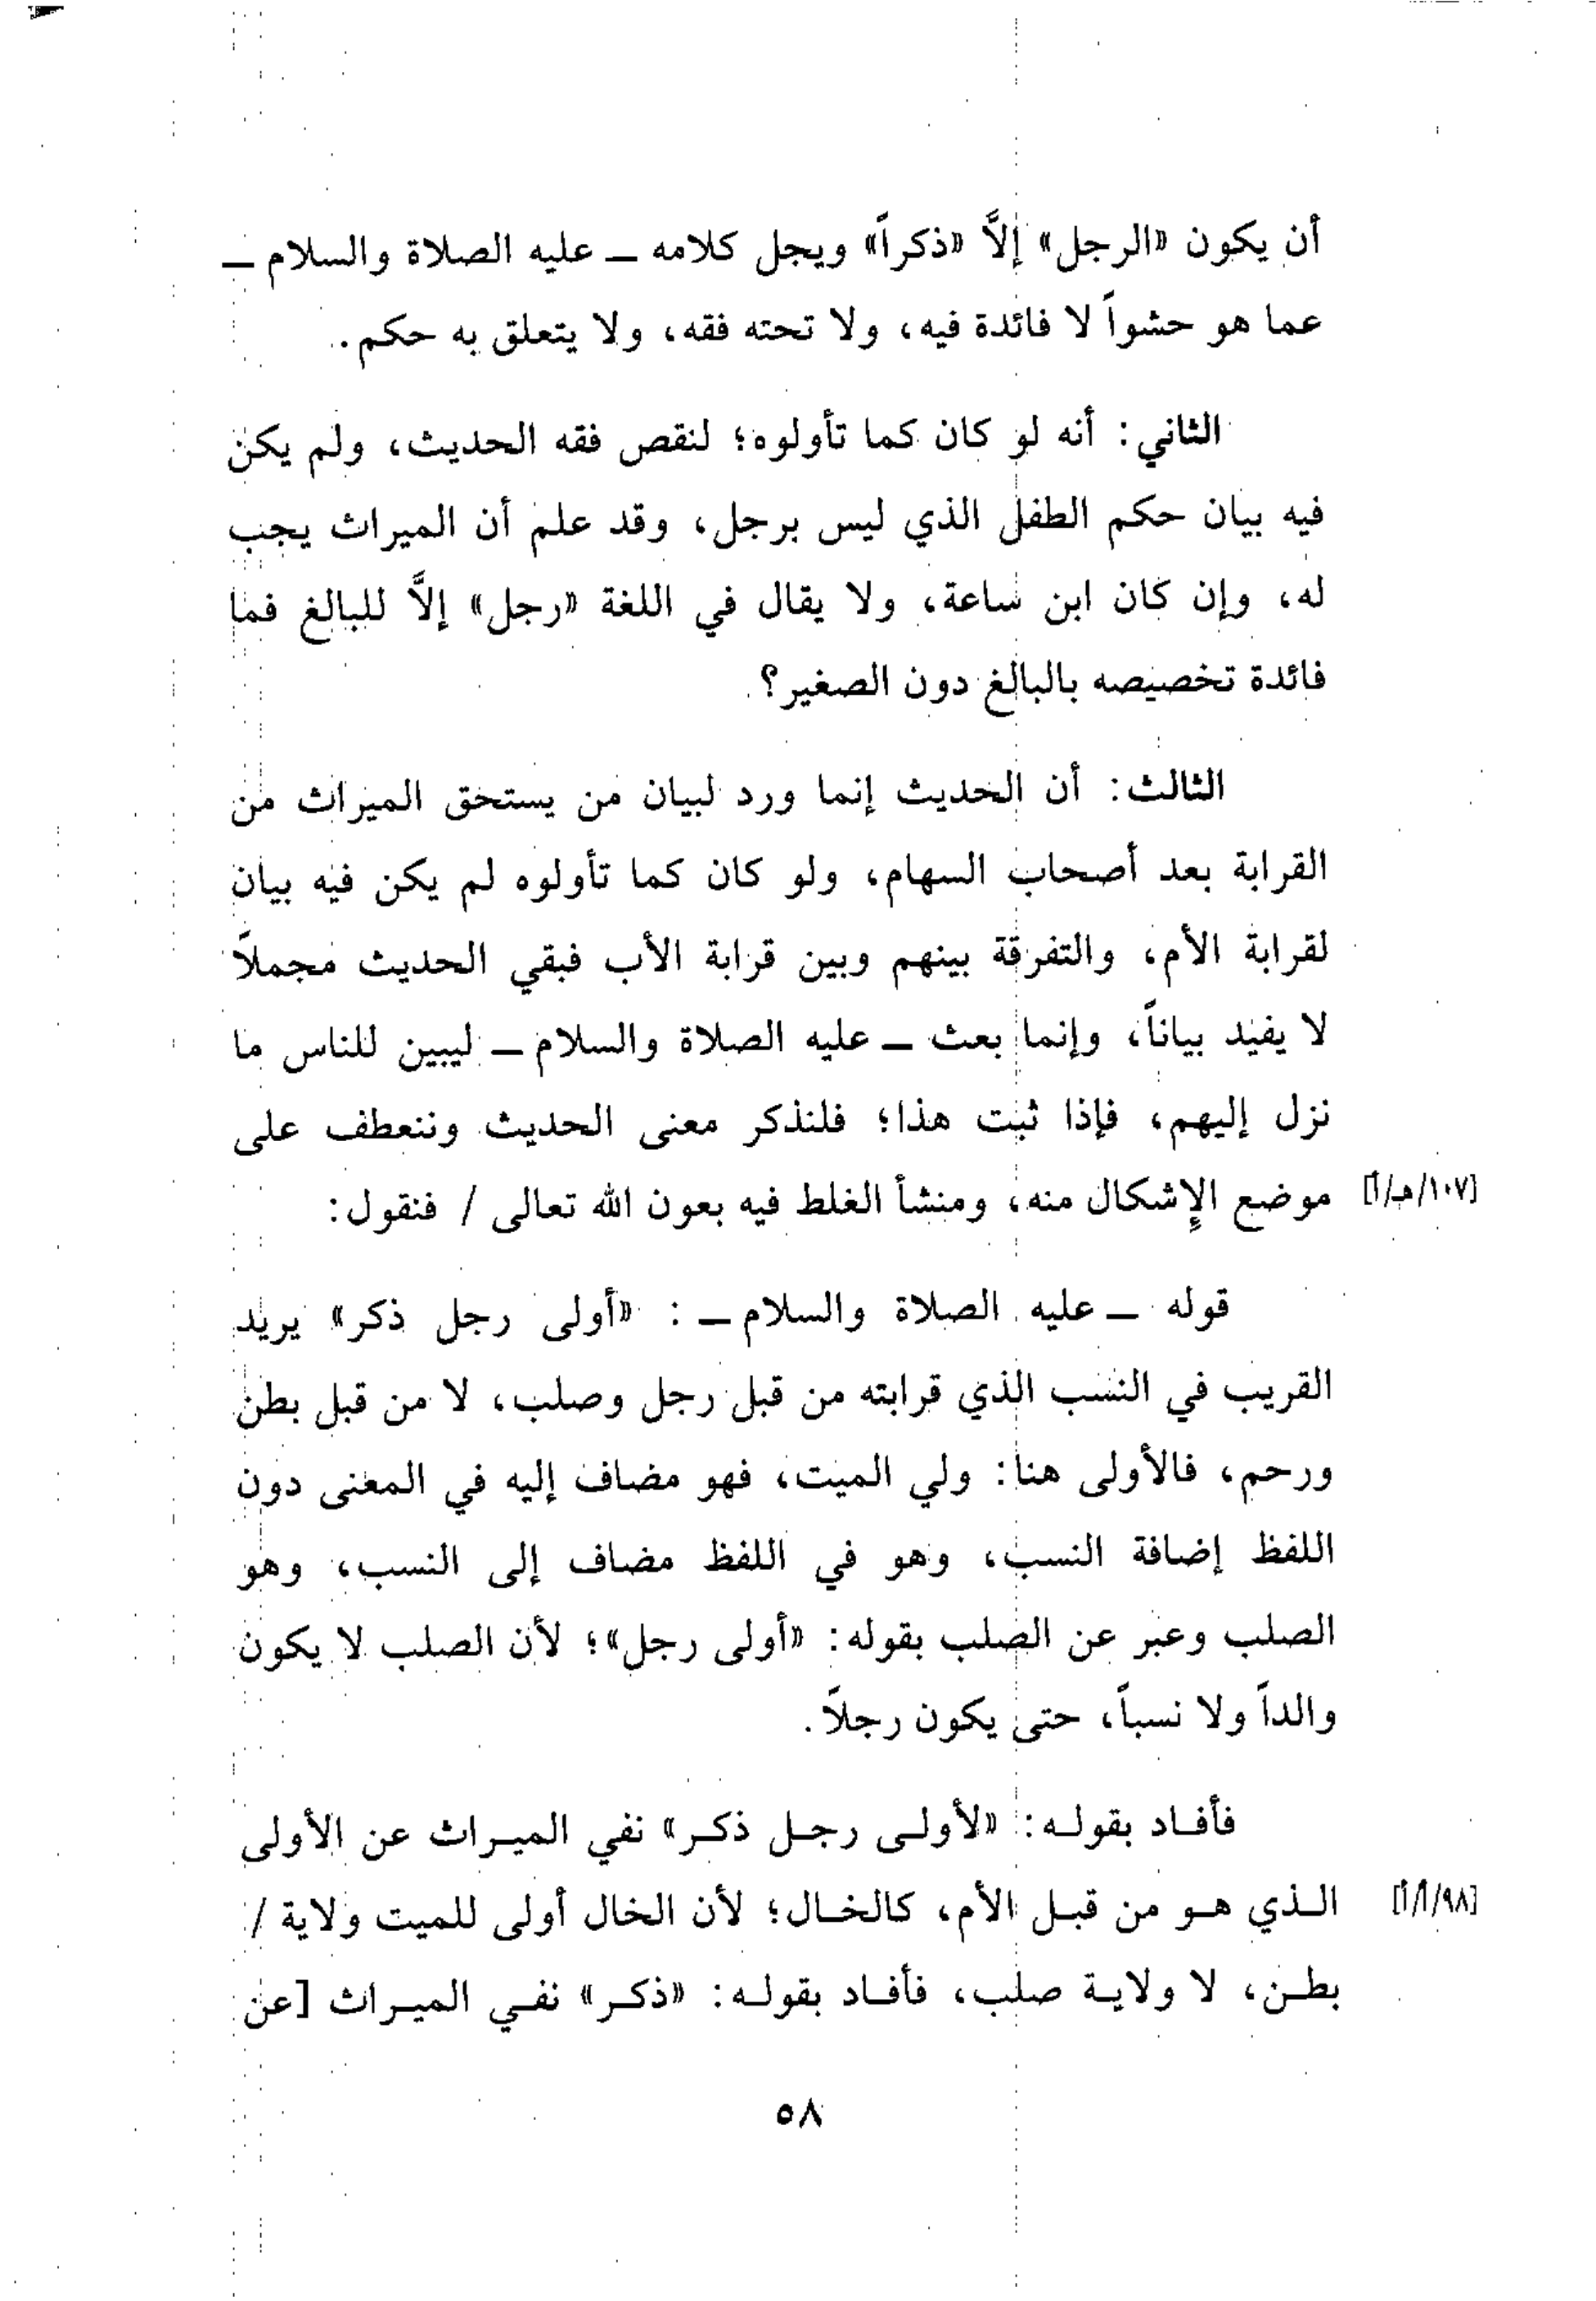 أن يكون «الرجل» إلاَّ «ذكراً» ويجل كلامه ــ عليه الصلاة والسلام ــ
عما هو حشواً لا فائدة فيه، ولا تحته فقه، ولا يتعلق به حكم.
الثاني: أنه لو كان كما تأولوه؛ لنقص فقه الحديث، ولم يكن
فيه بيان حكم الطفل الذي ليس برجل، وقد علم أن الميراث يجب
له، وإن كان ابن ساعة، ولا يقال في اللغة «رجل» إلاَّ للبالغ فما
فائدة تخصيصه بالبالغ دون الصغير؟
الثالث: أن الحديث إنما ورد لبيان من يستحق الميراث من
القرابة بعد أصحاب السهام، ولو كان كما تأولوه لم يكن فيه بيان
لقرابة الأم، والتفرقة بينهم وبين قرابة الأب فبقي الحديث مجملاً
لا يفيد بياناً، وإنما بعث ــ عليه الصلاة والسلام ــ ليبين للناس ما
نزل إليهم، فإذا ثبت هذا؛ فلنذكر معنى الحديث وننعطف على
[١٠٧/هـ/أ] موضع الإشكال منه، ومنشأ الغلط فيه بعون الله تعالى / فنقول:
قوله ــ عليه الصلاة والسلام ــ : «أولى رجل ذكر» يريد
القريب في النسب الذي قرابته من قبل رجل وصلب، لا من قبل بطن
ورحم، فالأولى هنا: ولي الميت، فهو مضاف إليه في المعنى دون
اللفظ إضافة النسب، وهو في اللفظ مضاف إلى النسب، وهو
الصلب وعبر عن الصلب بقوله: «أولى رجل»؛ لأن الصلب لا يكون
والداً ولا نسباً، حتى يكون رجلاً.
فأفاد بقوله: «لأولى رجل ذكر» نفي الميراث عن الأولى
[٩٨/أ/أ] الذي هو من قبل الأم، كالخال؛ لأن الخال أولى للميت ولاية /
بطن، لا ولاية صلب، فأفاد بقوله: «ذكر» نفي الميراث [عن
٥٨